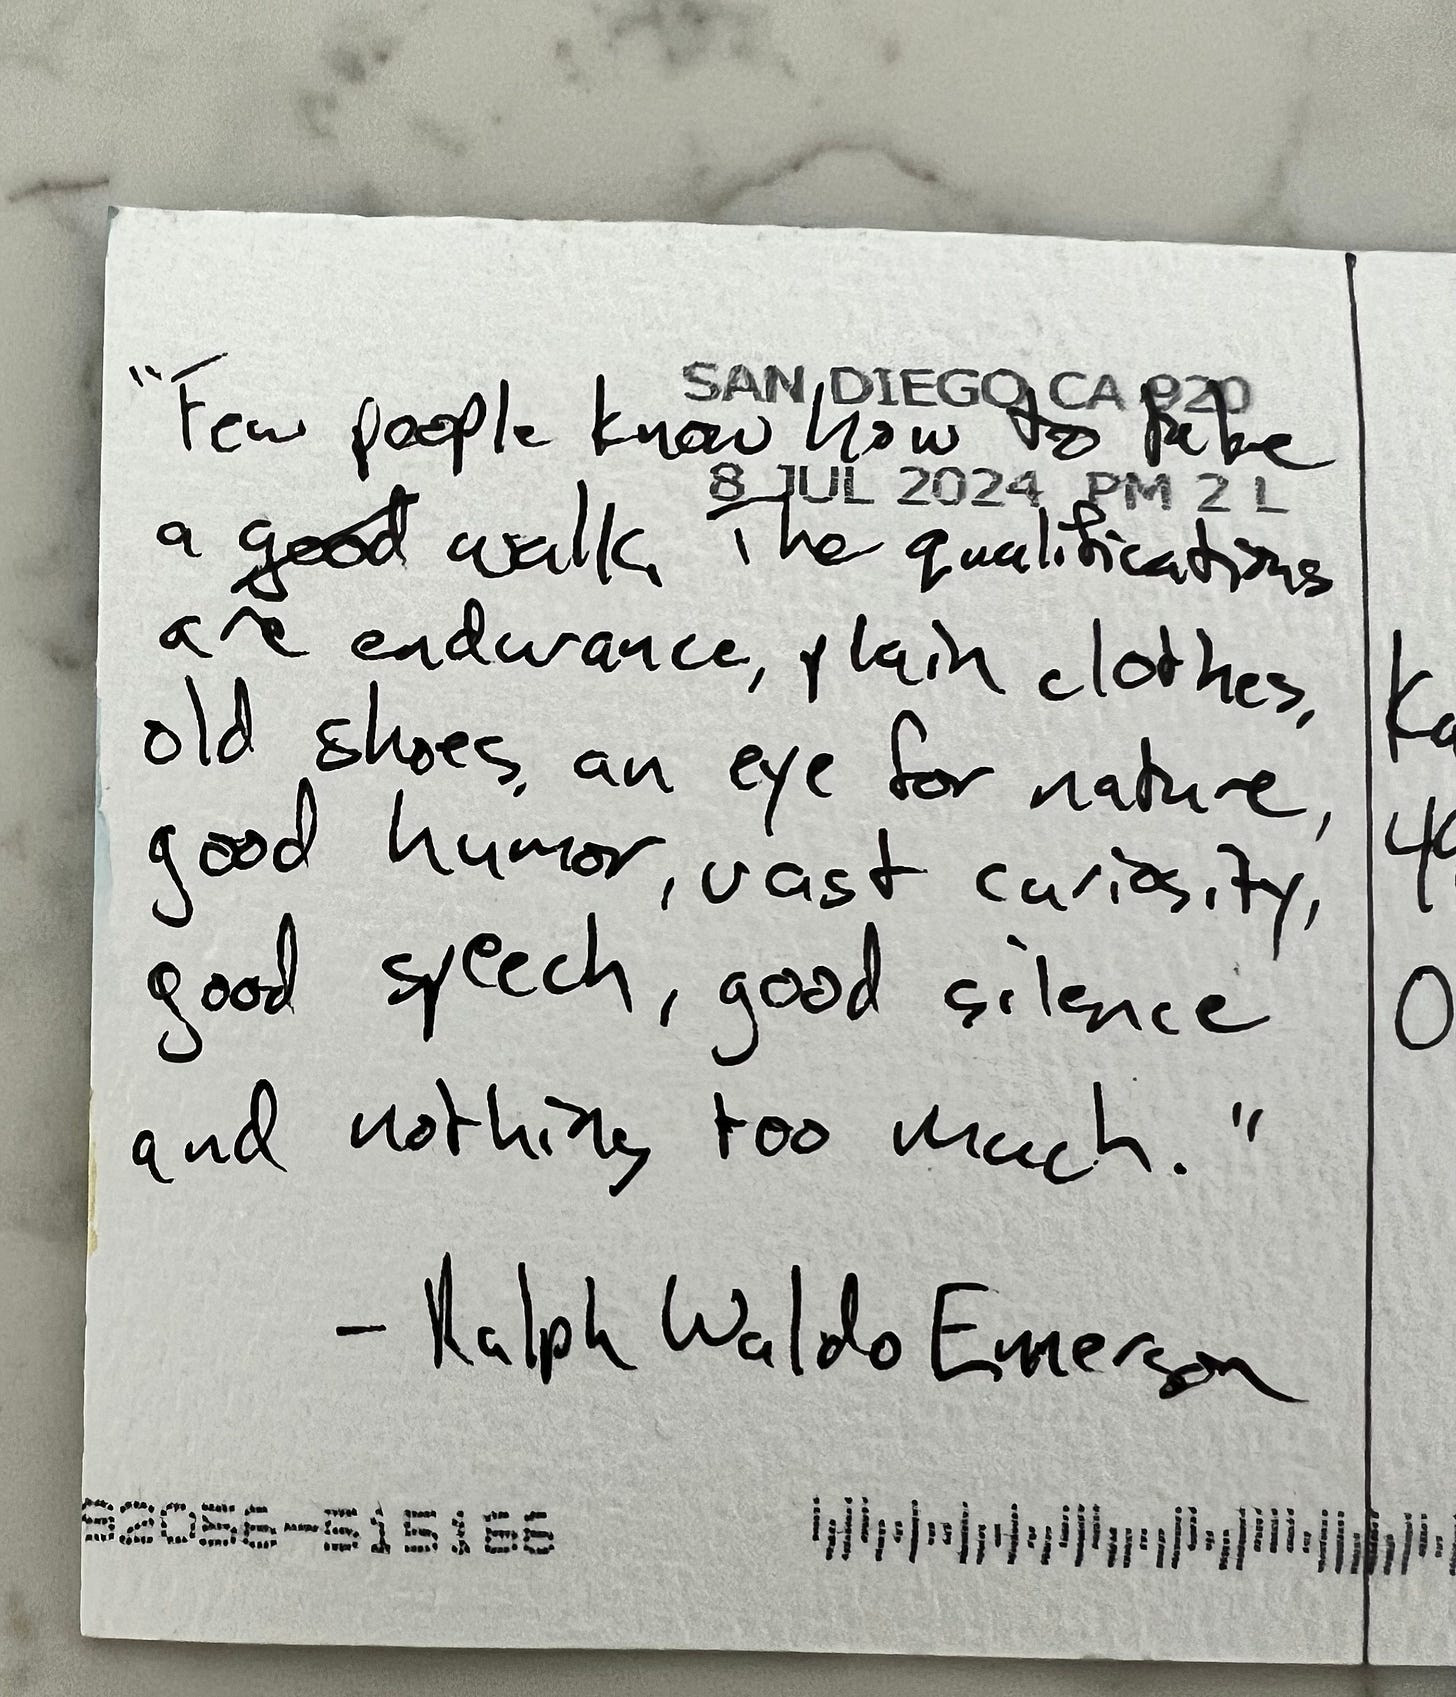 SAN DIEGO CA 920
"Few people know how to take
8 JUL 2024 PM 2 L
a good walk. The qualifications
are endurance, plain clothes,
old shoes, an eye for nature,
good humor, vast curiosity,
good speech, good silence
and nothing too much."
- Ralph Waldo Emerson
Ka
49
0